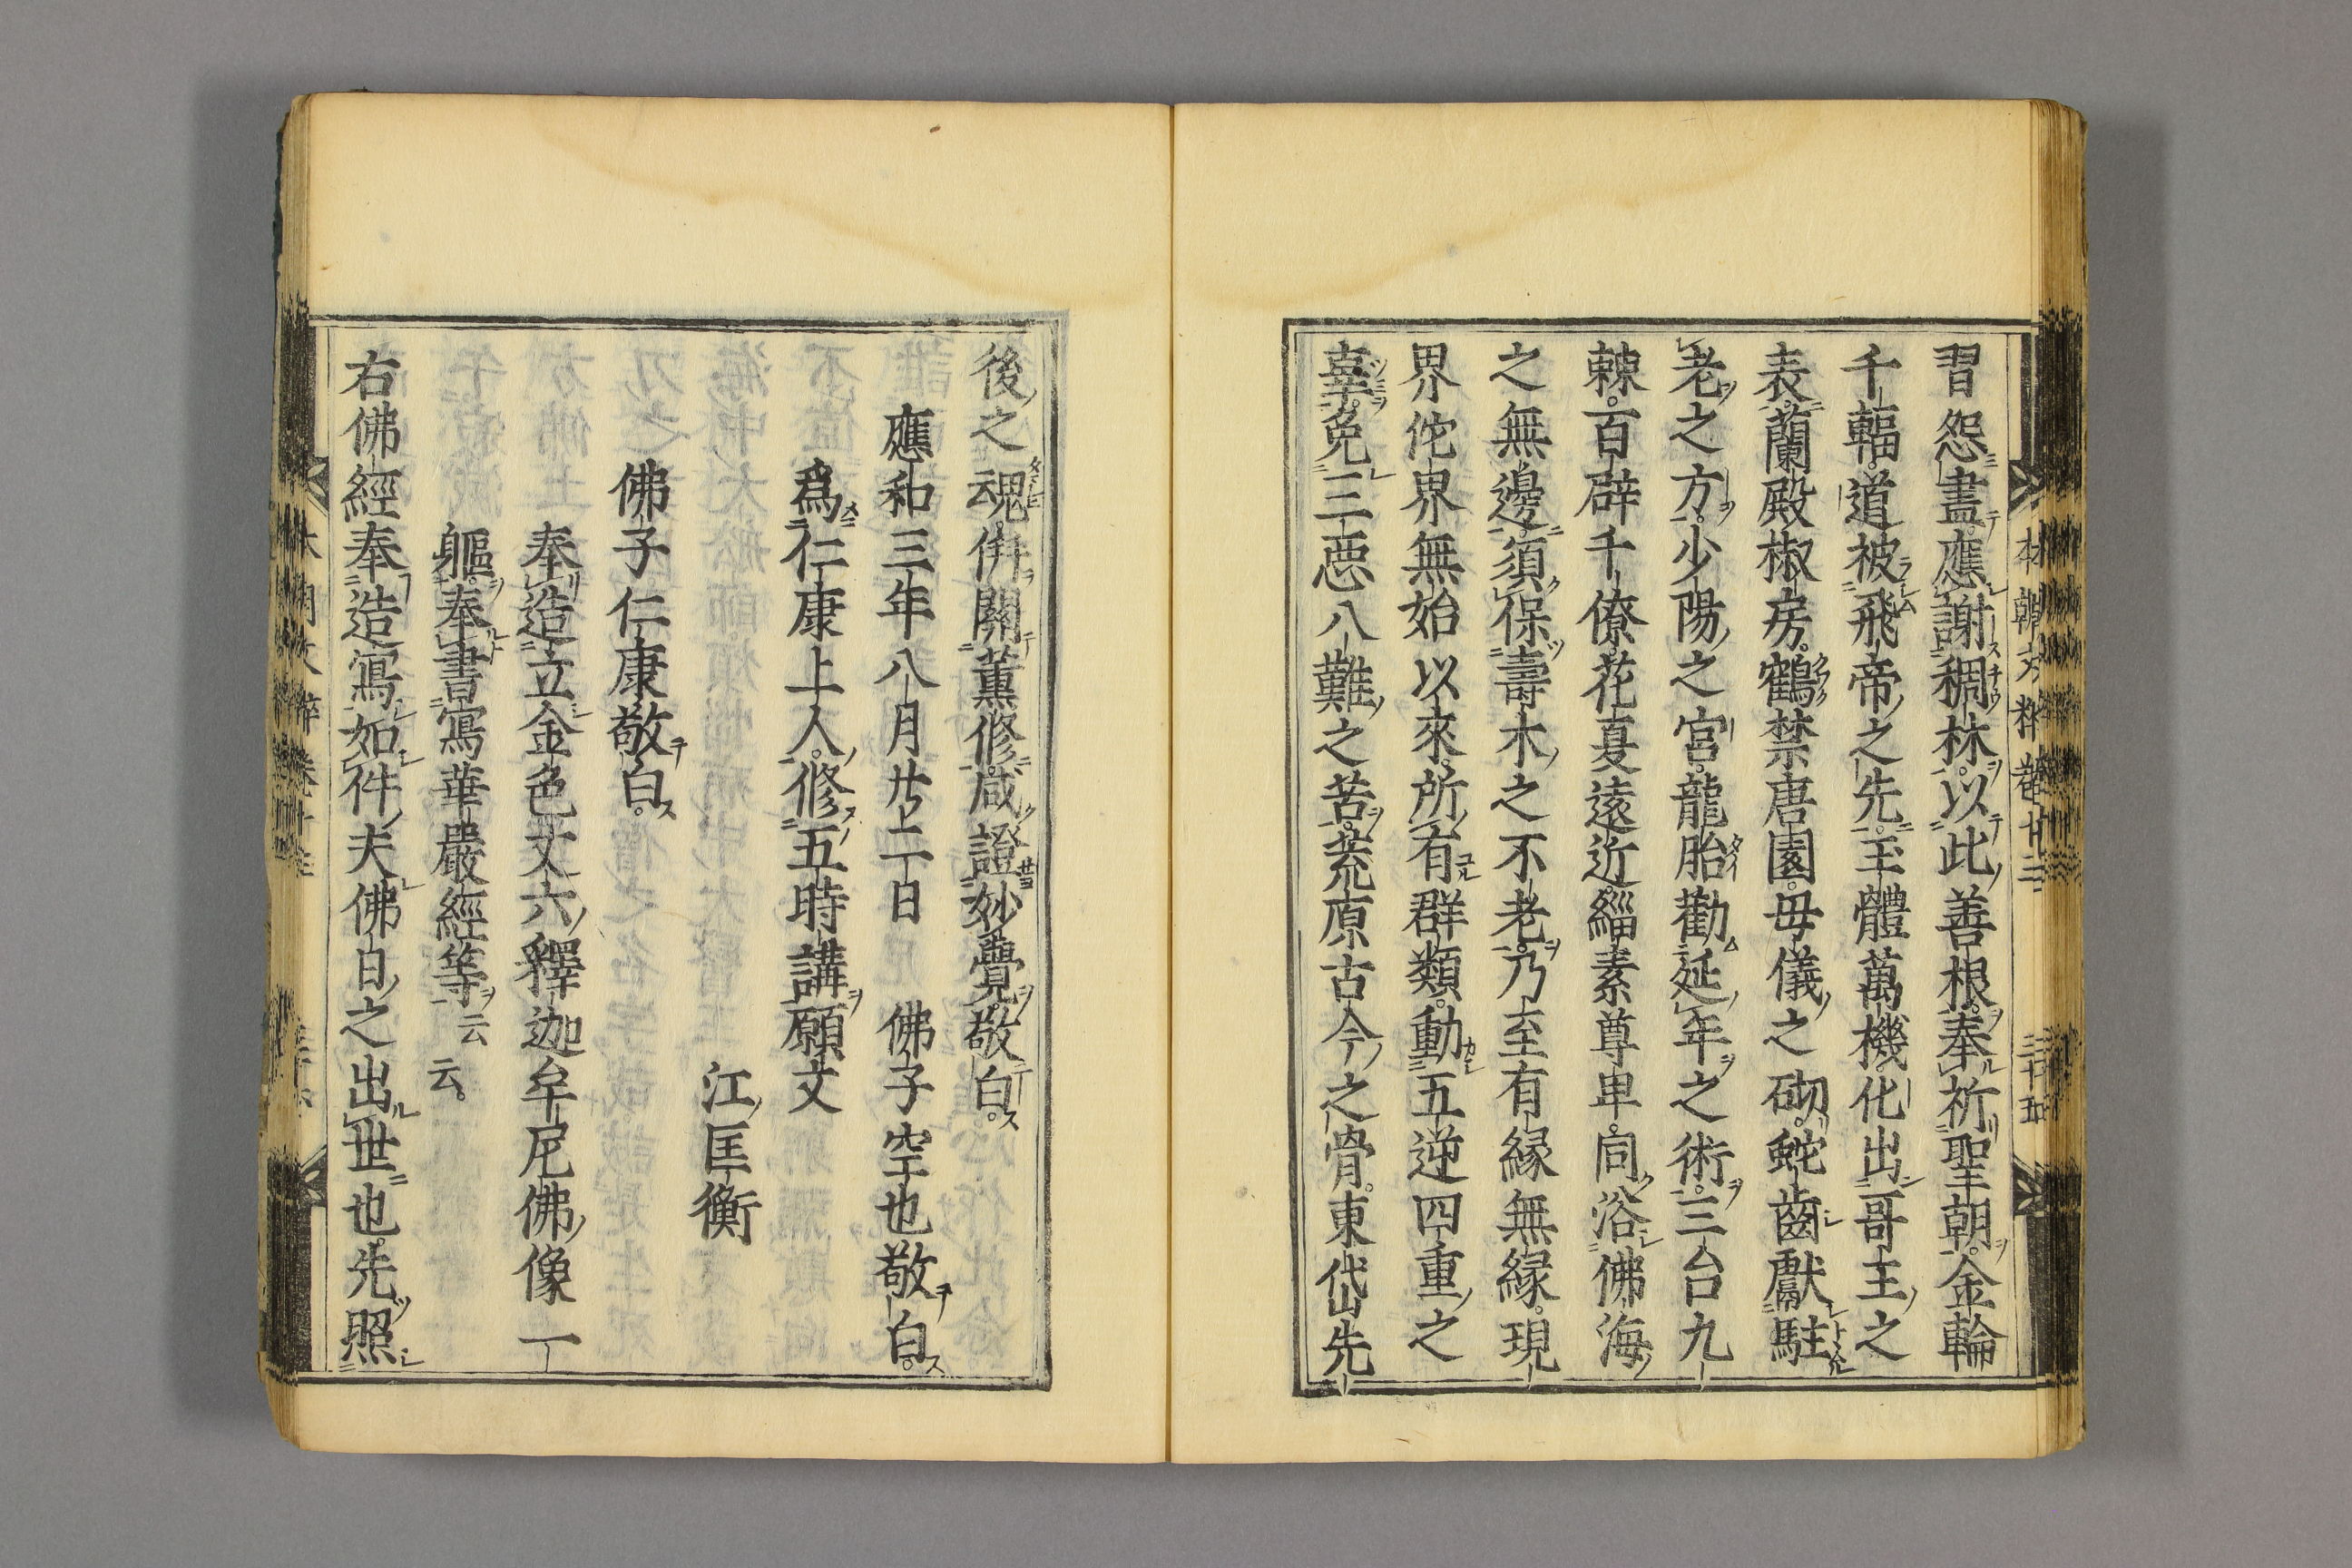 習怨盡。應謝稠林。以此善根。奉祈聖朝。金輪
千輻。道被飛帝之先。玉體萬機。化出哥王之
表。蘭殿椒房。鶴禁唐園。母儀之砌。鮀齒獻駐
老之方。少陽之宮。龍胎勸延年之術。三台九
棘。百辟千僚。花夏遠近。緇素尊卑。同浴佛海
之無邊。須保壽木之不老。乃至有緣無緣。現
界佗界。無始以來。所有群類。動五逆四重之
辜。免三惡八難之苦。荒原古今之骨。東岱先
本朝文粹卷十三
三十五
後之魂。併關薰修。咸證妙覺。敬白。
應和三年八月廿二日 佛子空也敬白。
爲仁康上人。修五時講願文
江匡衡
佛子仁康敬白。
奉造立金色丈六釋迦牟尼佛像一
軀。奉書寫華嚴經等云云。
右佛經奉造寫如件。夫佛日之出世也。先照